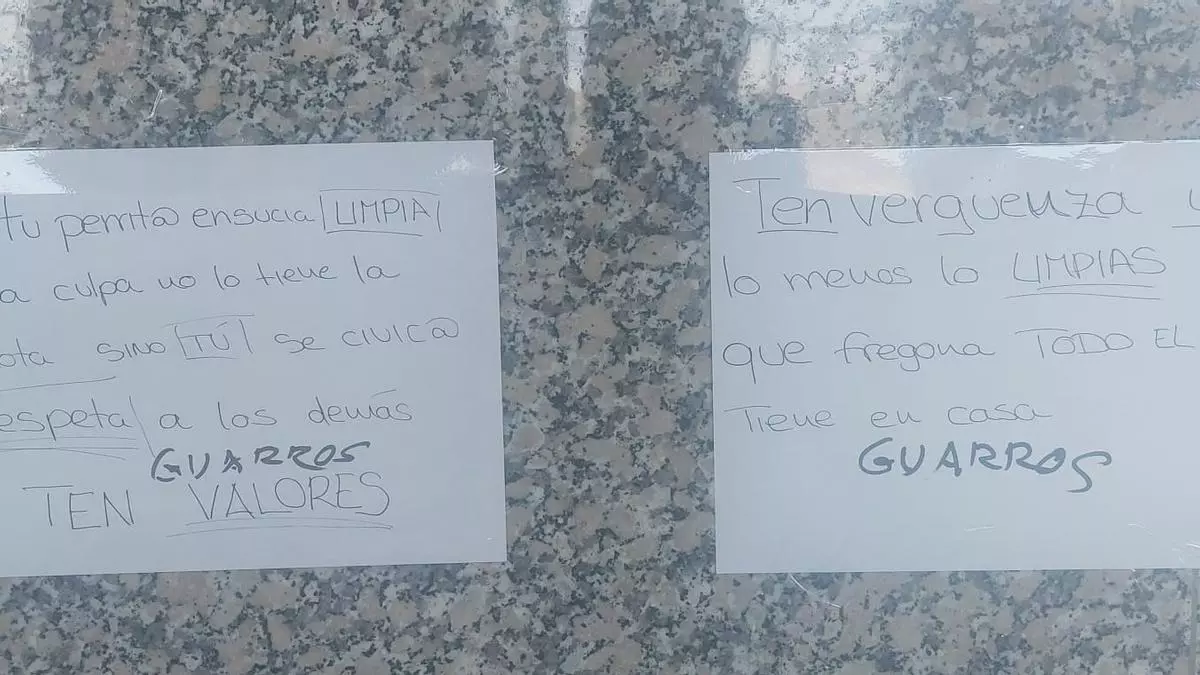 tu perrit@ ensucia LIMPIA
a culpa no lo tiene la
ota sino TÚ se civic@
espeta a los demás
GUARROS
TEN VALORES
Ten verguenza
lo menos lo LIMPIAS
que fregona TODO EL
Tiene en casa
GUARROS